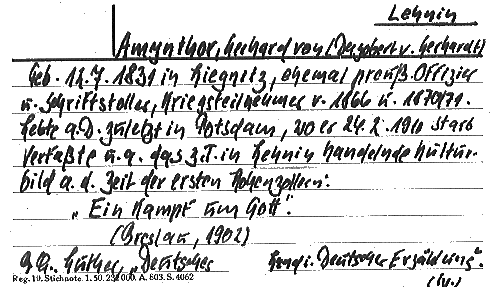 Lehnin
Amynthor, Gerhard von (Dagobert v. Gerhardt)
Geb. 12.7.1831 in Liegnitz, ehemal preuß. Offizier
u. Schriftsteller, Kriegsteilnehmer v. 1866 u. 1870/71.
Lebte a.D. zuletzt in Potsdam, wo er 24.2.1910 starb
Verfaßte u.a. das z.T. in Lehnin handelnde Kultur-
bild a. d. Zeit der ersten Hohenzollern:
"Ein Kampf um Gott".
(Breslau, 1902)
Luther, "Deutsches
Deutscher Erzählung".
Reg. 19. Stichnote. 1. 50. 232000. A. 803. S. 4062